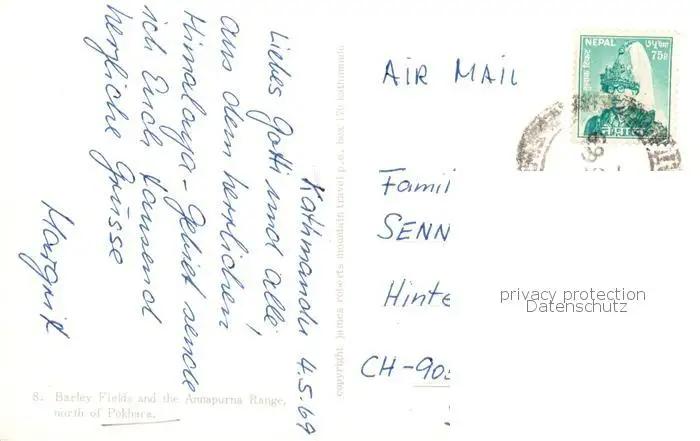 Kathmandu 4.5.69
Liebes Gotti und alle,
aus dem herrlichen
Himalaya-Gebiet sende
ich Euch tausend
herzliche Grüsse
Margrit
8. Barley Fields and the Annapurna Range,
north of Pokhara.
copyright james roberts mountain travel p.o. box 170 kathmandu
AIR MAIL
NEPAL
75P
नेपाल
Famil
SENN
Hinte
CH-905
privacy protection
Datenschutz